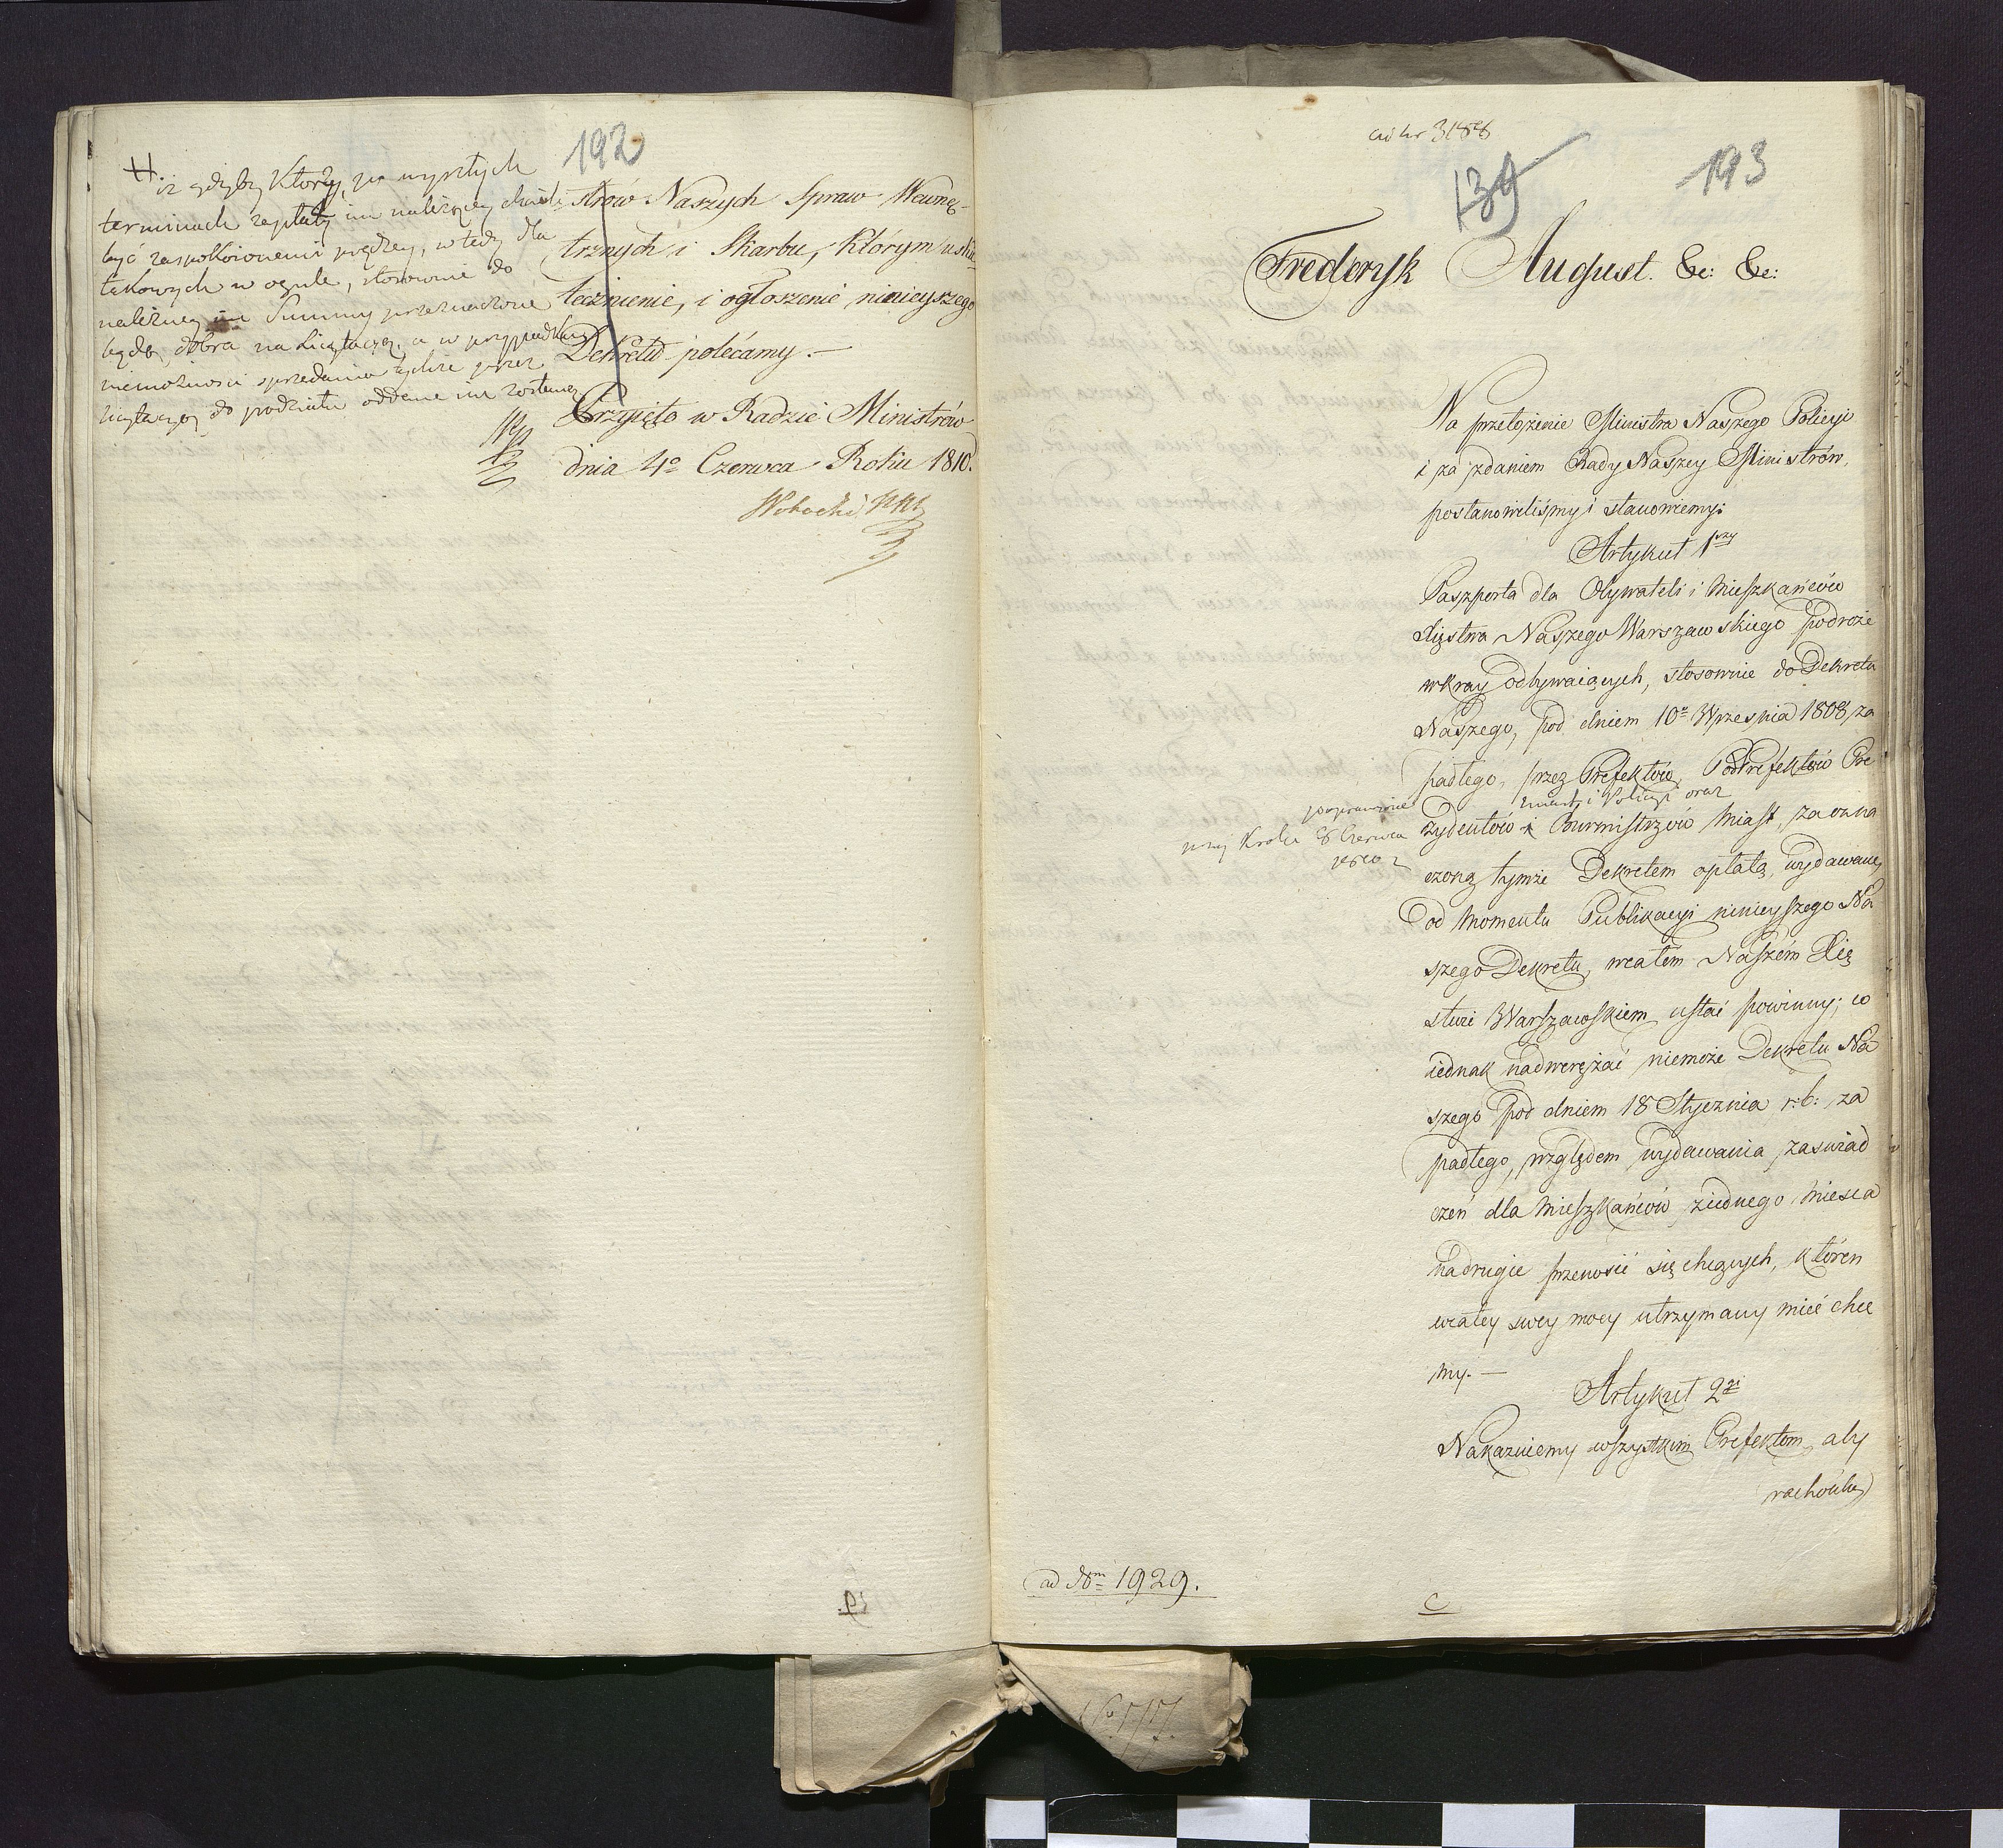 192
H. iż gdyby którzy, po wyszłych
terminach zapłaty im należącey chcieli
być zaspokoionemi prędzey, wtedy dla
takowych w ogule, stosownie do
należney im Summy przeznaczone
będą dobra na Licytacyą, a w przypadku
niemożności sprzedania tychże przez
licytacyą do podziału oddane im zostaną
strów Naszych Spraw Wewnę-
trznych i Skarbu, którym usku-
tecznienie, i ogłoszenie ninieyszego
Dekretu polecamy.—
Przyięto w Radzie Ministrów
dnia 4º Czerwca Roku 1810.
19.
ad Nr 3188
139
193
Frederyk August. &c: &c:
Na przełożenie Ministra Naszego Policyi
i za zdaniem Rady Naszey Ministrów,
postanowiliśmy i stanowiemy:
Artykuł 1szy
Paszporta dla Obywateli i Mieszkańców
Xięstwa Naszego Warszawskiego podróże
w kray odbywaiących, stosownie do Dekretu
Naszego, pod dniem 10º Września 1808, za
padłego, przez Prefektów, Podprefektów Pre
zydentów i Burmistrzów Miast, za ozna
Intend: i Policyi oraz
poprawione
przez Króla 8 Czerwca
1810
czoną tymże Dekretem opłatą, wydawane,
od momentu Publikacyi ninieyszego Na
szego Dekretu, wcałém Naszém Xię
stwie Warszawskiem ustać powinny; co
iednak nadwerężać niemoże Dekretu Na
szego pod dniem 18 Stycznia r: b: za
padłego, względem wydawania zaświad
czeń dla Mieszkańców ziednego mieisca
nadrugie przenosić się chcących, któren
wcałey swey mocy utrzymany mieć chce
my.—
Artykuł 2gi
Nakazuiemy wszystkim Prefektom, aby
rachunki
ad Nm 1929.
C